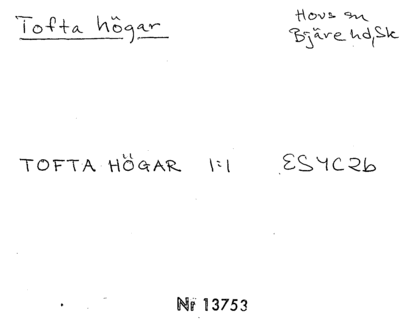 Tofta högar
Hovs sn
Bjäre hd, Sk
TOFTA HÖGAR 1:1 E5YC2b
Nr 13753